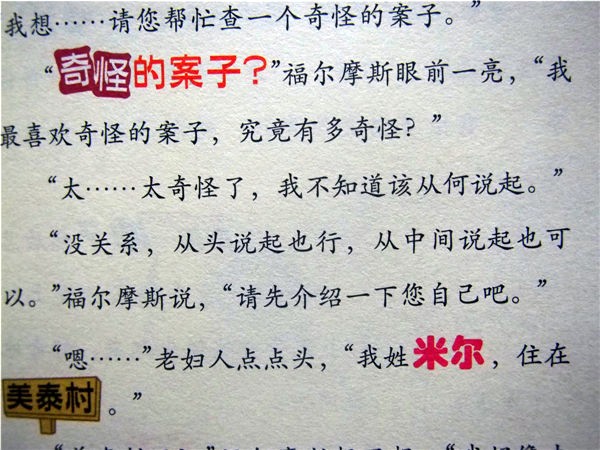 我想……请您帮忙查一个奇怪的案子。”
“奇怪的案子？”福尔摩斯眼前一亮，“我
最喜欢奇怪的案子，究竟有多奇怪？”
“太……太奇怪了，我不知道该从何说起。”
“没关系，从头说起也行，从中间说起也可
以。”福尔摩斯说，“请先介绍一下您自己吧。”
“嗯……”老妇人点点头，“我姓米尔，住在
美泰村。”